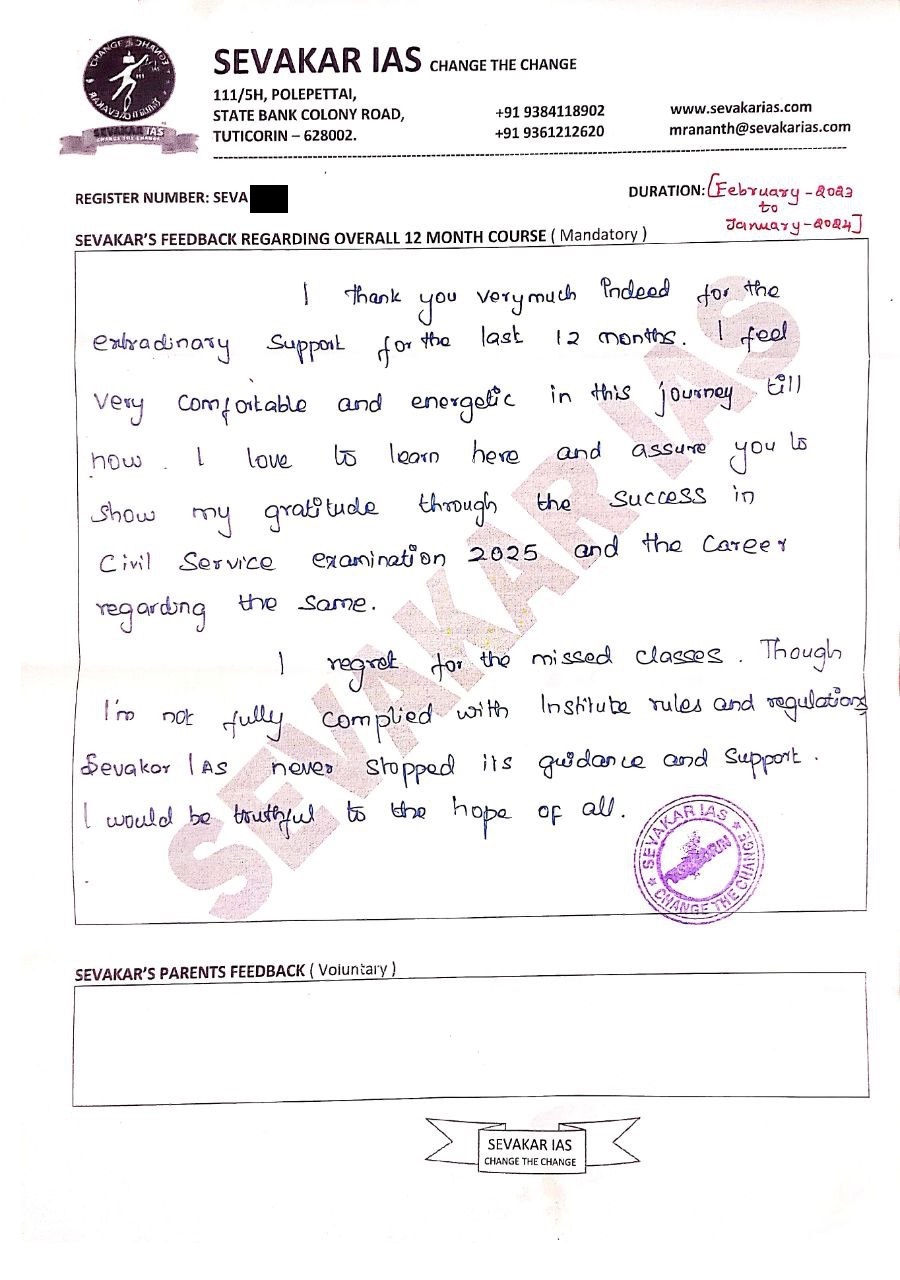 SEVAKAR IAS CHANGE THE CHANGE
111/5H, POLEPETTAI,
STATE BANK COLONY ROAD,
TUTICORIN – 628002.
+91 9384118902
+91 9361212620
www.sevakarias.com
mrananth@sevakarias.com
SEVAKAR IAS
REGISTER NUMBER: SEVA
DURATION: [February-2023
to
January-2024]
SEVAKAR'S FEEDBACK REGARDING OVERALL 12 MONTH COURSE ( Mandatory )
I thank you verymuch indeed for the
extradinary support for the last 12 months. I feel
very comfortable and energetic in this journey till
now. I love to learn here and assure you to
show my gratitude through the success in
Civil Service examination 2025 and the career
regarding the same.
I regret for the missed classes. Though
I'm not fully complied with Institute rules and regulations
Sevakar IAS never stopped its guidance and support.
I would be truthful to the hope of all.
SEVAKAR IAS
SEVAKAR IAS
CHANGE THE CHANGE
SEVAKAR'S PARENTS FEEDBACK ( Voluntary )
SEVAKAR IAS
CHANGE THE CHANGE